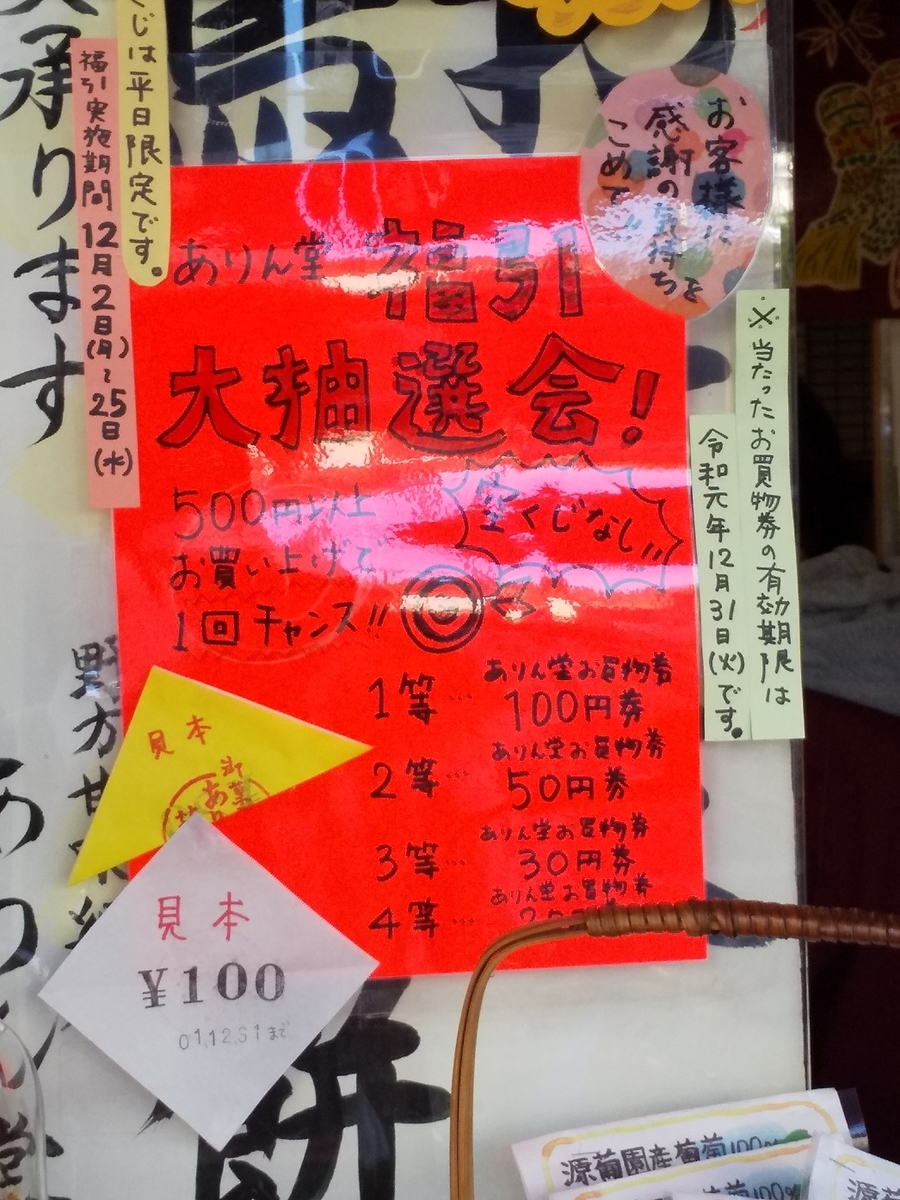 承ります
くじは平日限定です。
福引実施期間 12月2日(月)~25日(水)
お客様に
感謝の気持ちを
こめて!!
ありん堂 福引
大抽選会!
500円以上
お買い上げで
1回チャンス!!
空くじなし!!
1等… ありん堂お買物券
100円券
2等… ありん堂お買物券
50円券
3等… ありん堂お買物券
30円券
4等… ありん堂お買物券
※当たったお買物券の有効期限は
令和元年12月31日(火)です。
見本
御菓
見本
¥100
01.12.31まで
野方
餅
堂
源葡園産葡萄100%